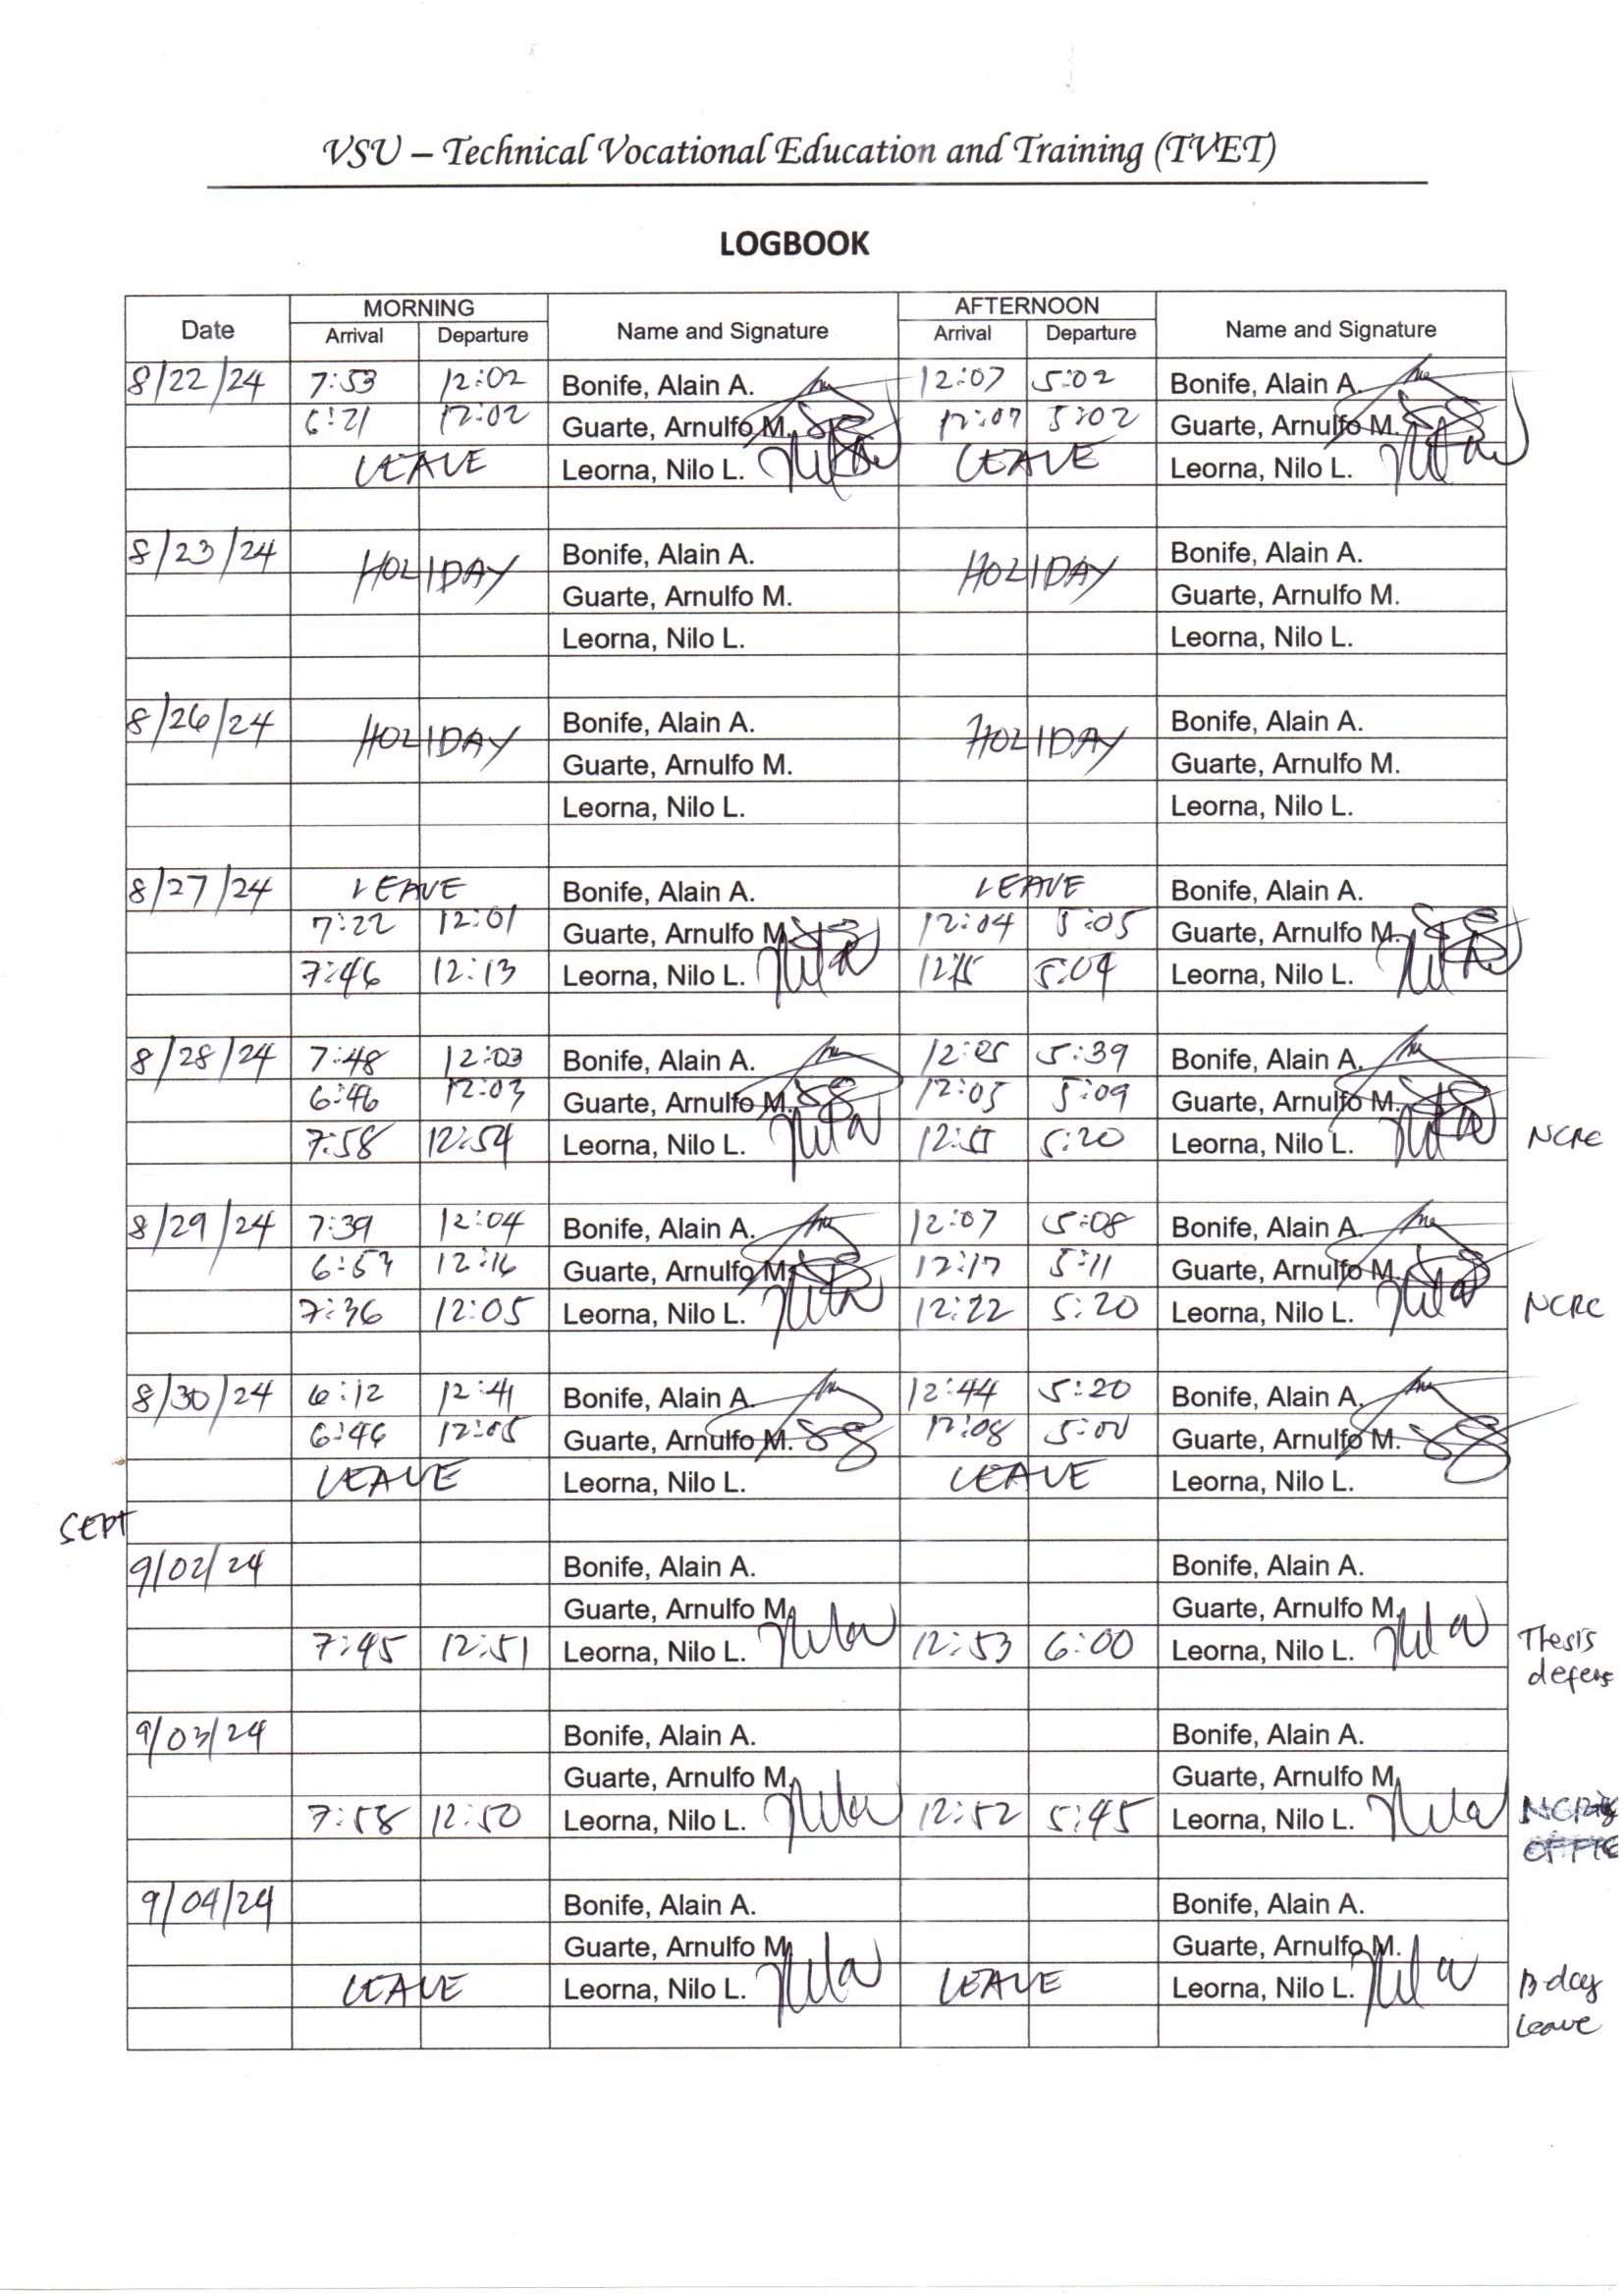 VSU – Technical Vocational Education and Training (TVET)
LOGBOOK
Date MORNING Name and Signature AFTERNOON Name and Signature
Arrival Departure Arrival Departure
8/22/24 7:53 12:02 Bonife, Alain A. 12:07 5:02 Bonife, Alain A.
6:21 12:02 Guarte, Arnulfo M. 12:07 5:02 Guarte, Arnulfo M.
LEAVE Leorna, Nilo L. LEAVE Leorna, Nilo L.
8/23/24 HOLIDAY Bonife, Alain A. HOLIDAY Bonife, Alain A.
Guarte, Arnulfo M. Guarte, Arnulfo M.
Leorna, Nilo L. Leorna, Nilo L.
8/26/24 HOLIDAY Bonife, Alain A. HOLIDAY Bonife, Alain A.
Guarte, Arnulfo M. Guarte, Arnulfo M.
Leorna, Nilo L. Leorna, Nilo L.
8/27/24 LEAVE Bonife, Alain A. LEAVE Bonife, Alain A.
7:22 12:01 Guarte, Arnulfo M. 12:04 5:05 Guarte, Arnulfo M.
7:46 12:13 Leorna, Nilo L. 12:15 5:04 Leorna, Nilo L.
8/28/24 7:48 12:03 Bonife, Alain A. 12:05 5:39 Bonife, Alain A.
6:46 12:03 Guarte, Arnulfo M. 12:05 5:09 Guarte, Arnulfo M.
7:58 12:54 Leorna, Nilo L. 12:55 5:20 Leorna, Nilo L. NCRC
8/29/24 7:39 12:04 Bonife, Alain A. 12:07 5:08 Bonife, Alain A.
6:53 12:16 Guarte, Arnulfo M. 12:17 5:11 Guarte, Arnulfo M.
7:36 12:05 Leorna, Nilo L. 12:22 5:20 Leorna, Nilo L. NCRC
8/30/24 6:12 12:41 Bonife, Alain A. 12:44 5:20 Bonife, Alain A.
6:46 12:05 Guarte, Arnulfo M. 12:08 5:00 Guarte, Arnulfo M.
LEAVE Leorna, Nilo L. LEAVE Leorna, Nilo L.
SEPT
9/02/24 Bonife, Alain A. Bonife, Alain A.
Guarte, Arnulfo M. Guarte, Arnulfo M.
7:45 12:51 Leorna, Nilo L. 12:53 6:00 Leorna, Nilo L. Thesis
defens
9/03/24 Bonife, Alain A. Bonife, Alain A.
Guarte, Arnulfo M. Guarte, Arnulfo M.
7:58 12:50 Leorna, Nilo L. 12:52 5:45 Leorna, Nilo L.
9/04/24 Bonife, Alain A. Bonife, Alain A.
Guarte, Arnulfo M. Guarte, Arnulfo M.
LEAVE Leorna, Nilo L. LEAVE Leorna, Nilo L. B-day
Leave